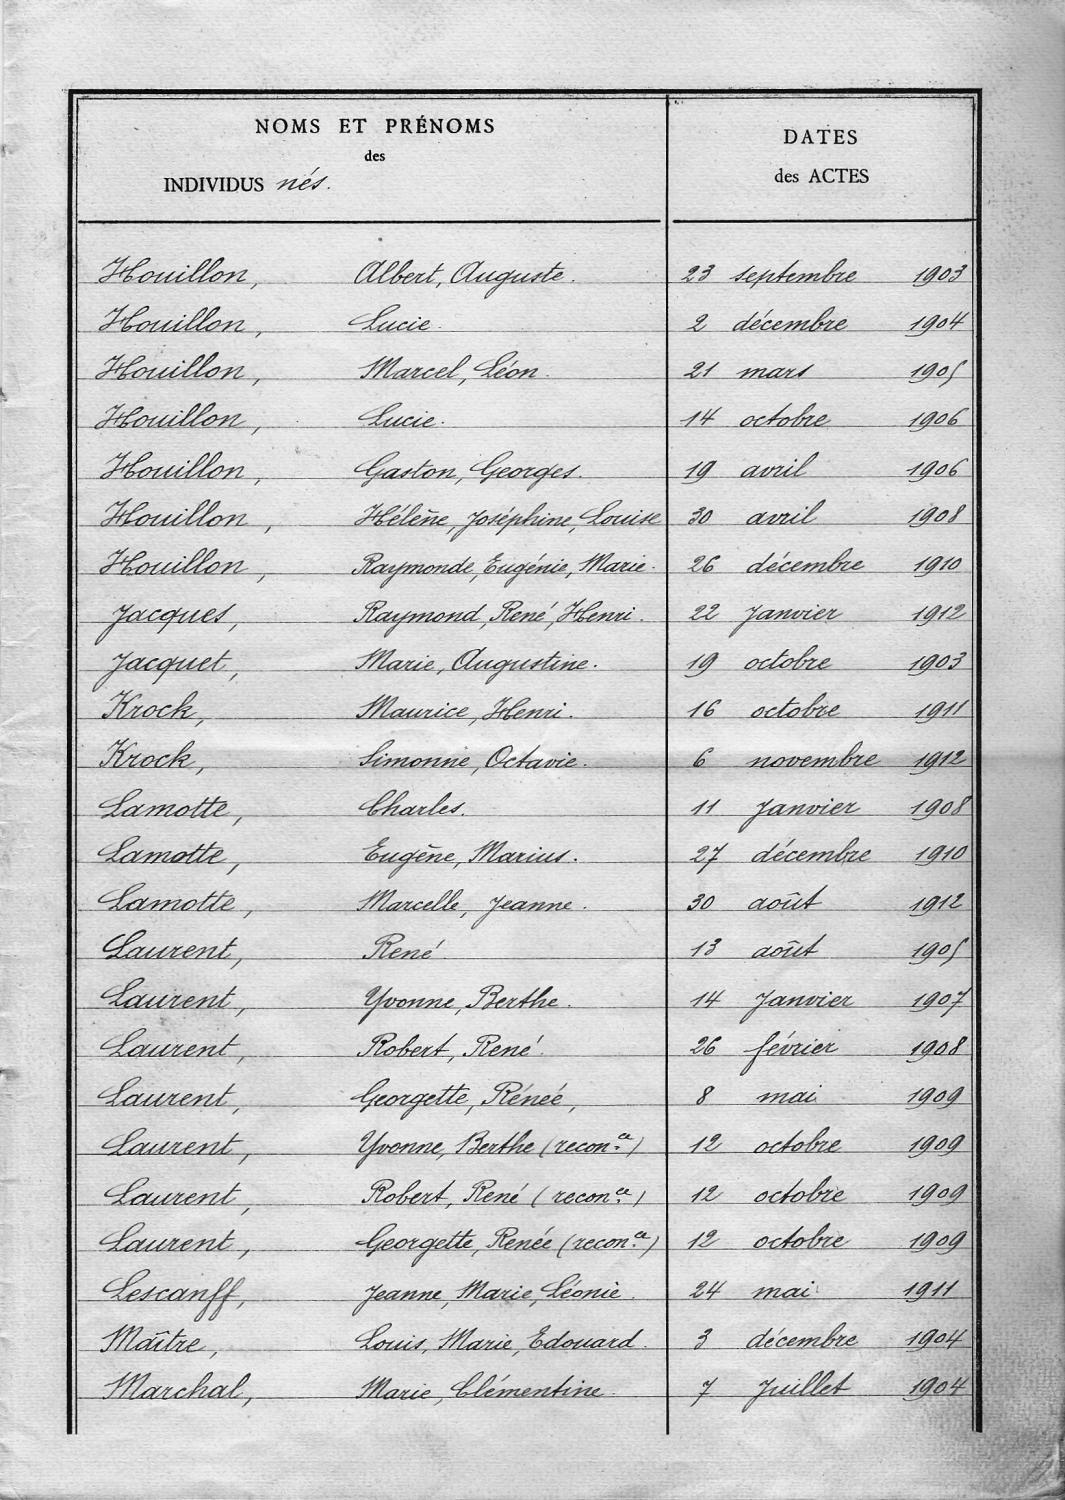 NOMS ET PRÉNOMS
des
INDIVIDUS nés.
DATES
des ACTES
Houillon, Albert, Auguste. 23 septembre 1903
Houillon, Lucie. 2 décembre 1904
Houillon, Marcel, Léon. 21 mars 1905
Houillon, Lucie. 14 octobre 1906
Houillon, Gaston, Georges. 19 avril 1906
Houillon, Hélène, Joséphine, Louise 30 avril 1908
Houillon, Raymonde, Eugénie, Marie. 26 décembre 1910
Jacques, Raymond, René, Henri. 22 Janvier 1912
Jacquet, Marie, Augustine. 19 octobre 1903
Krock, Maurice, Henri. 16 octobre 1911
Krock, Simonne, Octavie. 6 novembre 1912
Lamotte, Charles. 11 Janvier 1908
Lamotte, Eugène, Marius. 27 décembre 1910
Lamotte, Marcelle, Jeanne. 30 août 1912
Laurent, René 13 août 1905
Laurent, Yvonne, Berthe. 14 Janvier 1907
Laurent, Robert, René. 26 février 1908
Laurent, Georgette, Rénéé, 8 mai 1909
Laurent, Yvonne, Berthe (recon.ce) 12 octobre 1909
Laurent, Robert, René (recon.ce) 12 octobre 1909
Laurent, Georgette, Renée (recon.ce) 12 octobre 1909
Lescanff, Jeanne, Marie, Léonie. 24 mai 1911
Maître, Louis, Marie, Edouard. 3 décembre 1904
Marchal, Marie, Clémentine. 7 Juillet 1904